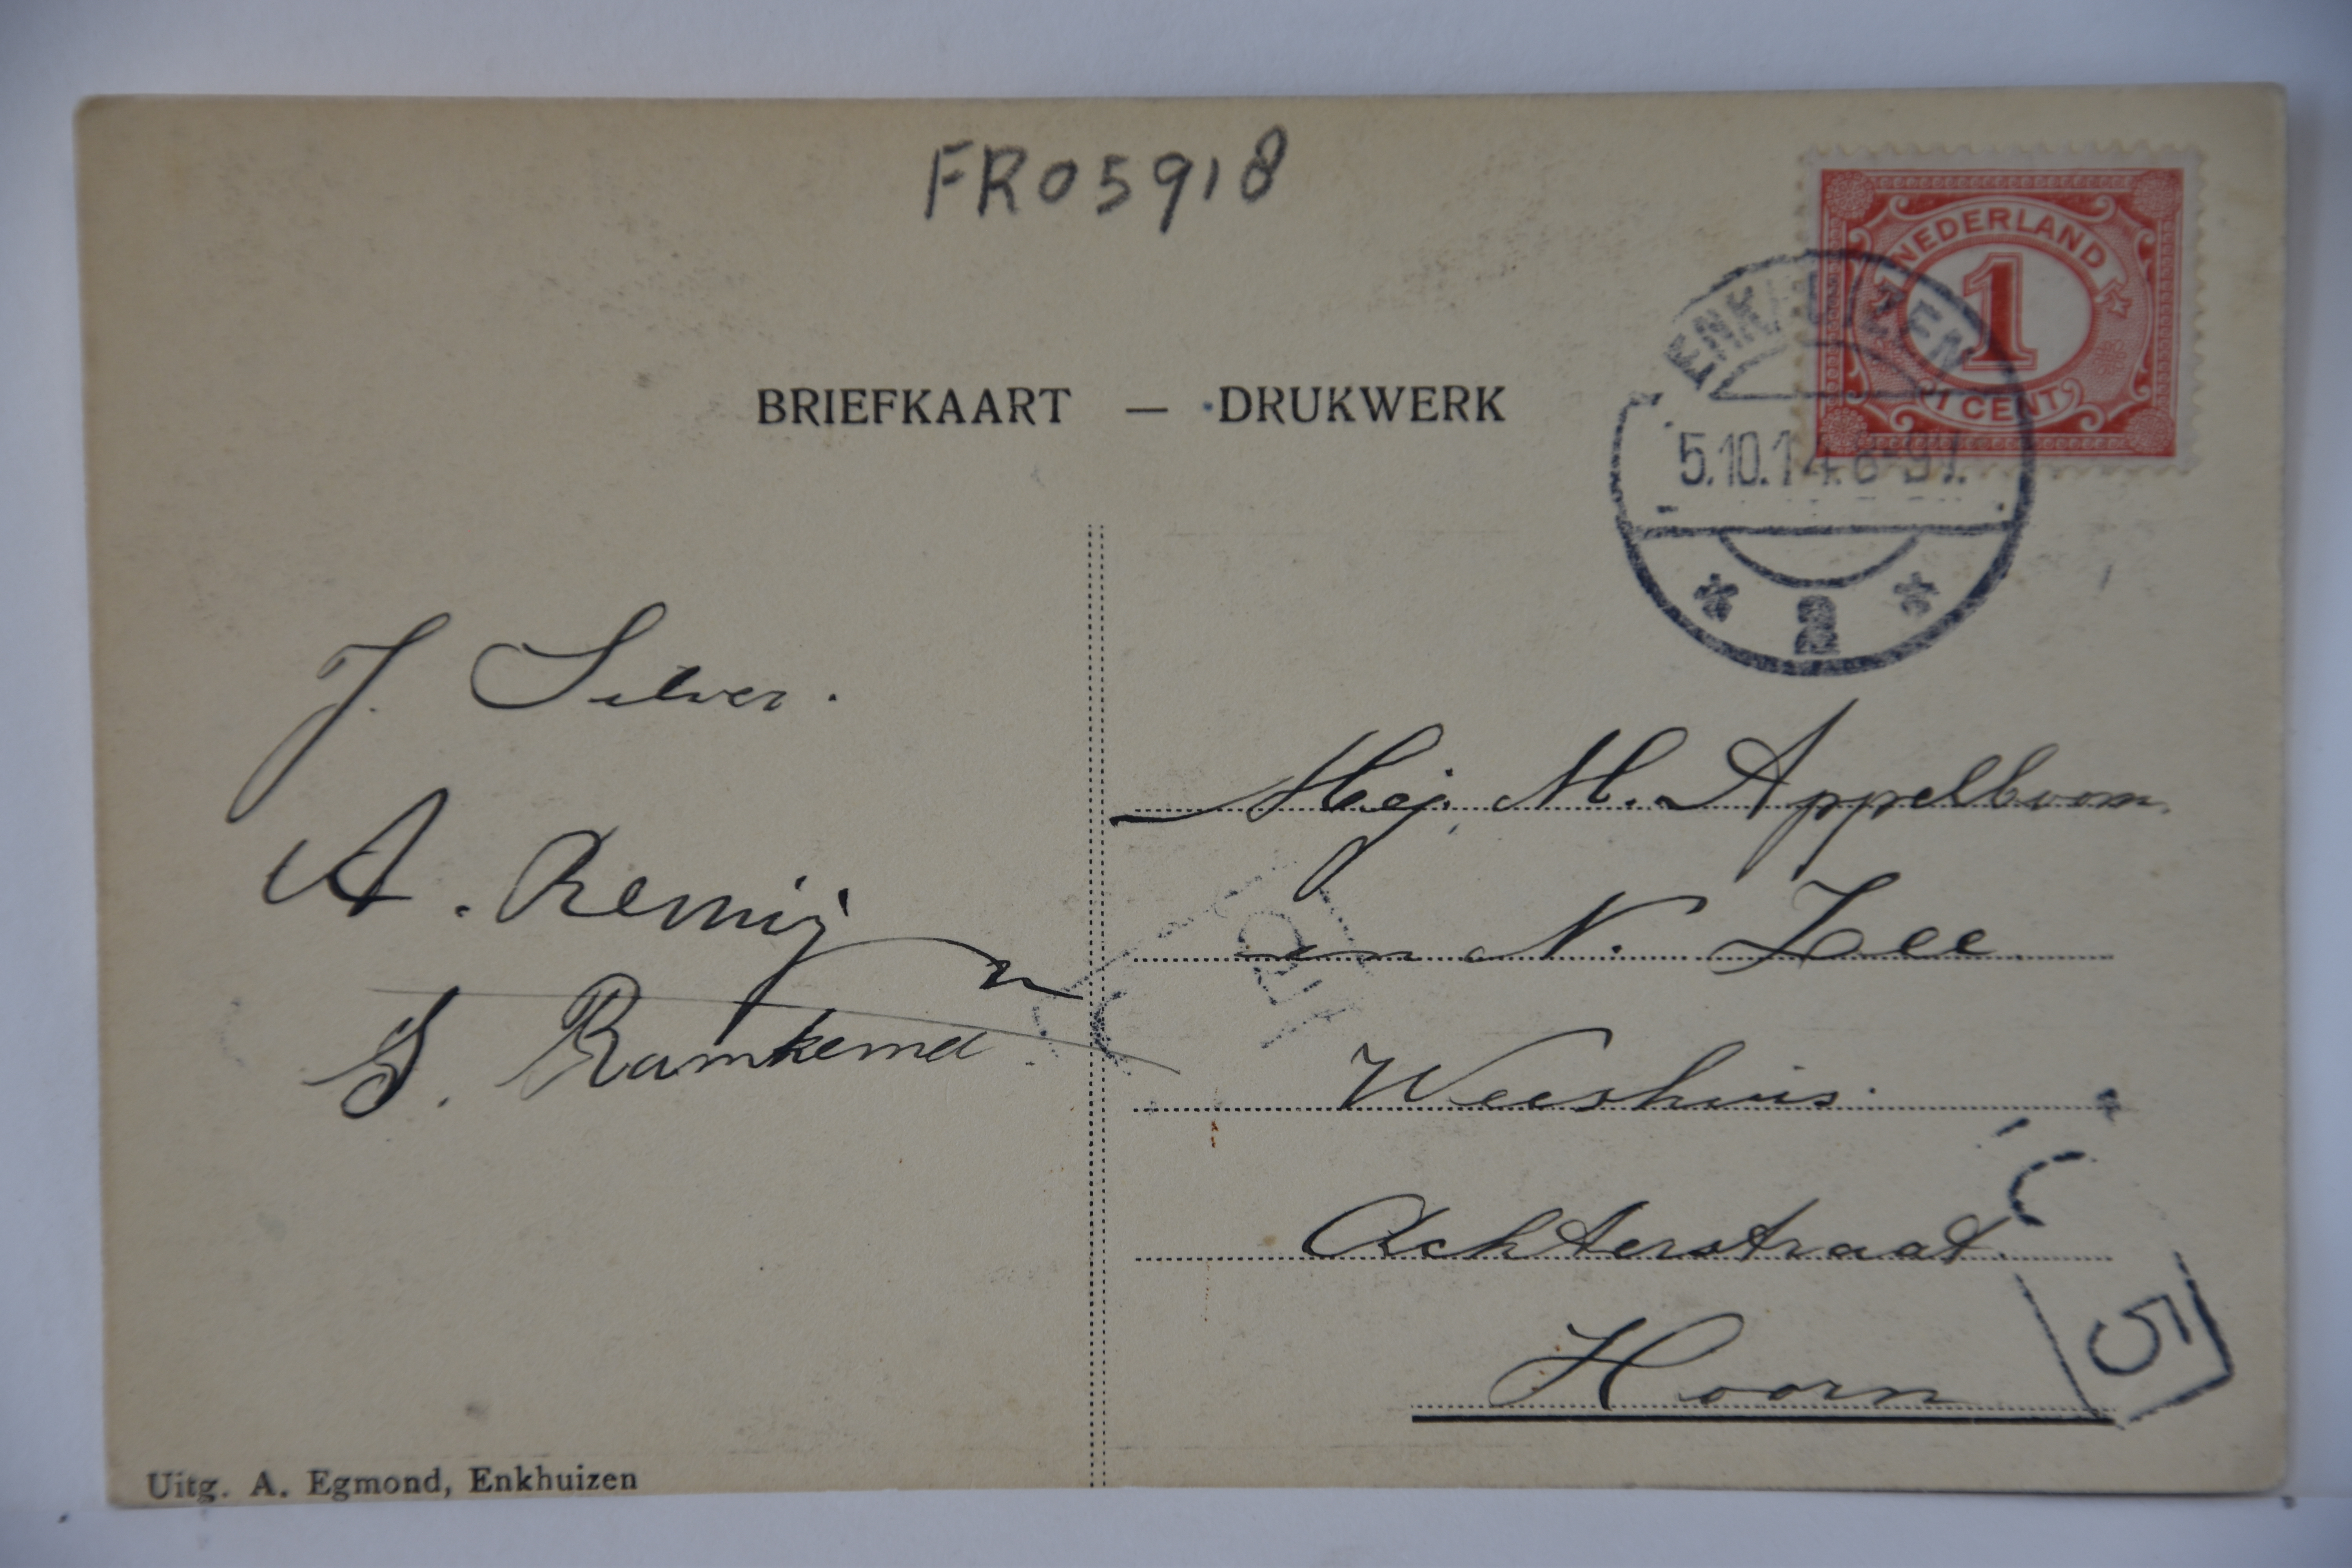 FR05918
NEDERLAND
1
1 CENT
ENKHUIZEN
5.10.14.8-9V.
2
BRIEFKAART — DRUKWERK
J. Silver.
A. Remijn
S. Ramkema
Mej. M. Appelboom.
en N. Zee.
Weeshuis.
Achterstraat.
Hoorn
5
Uitg. A. Egmond, Enkhuizen